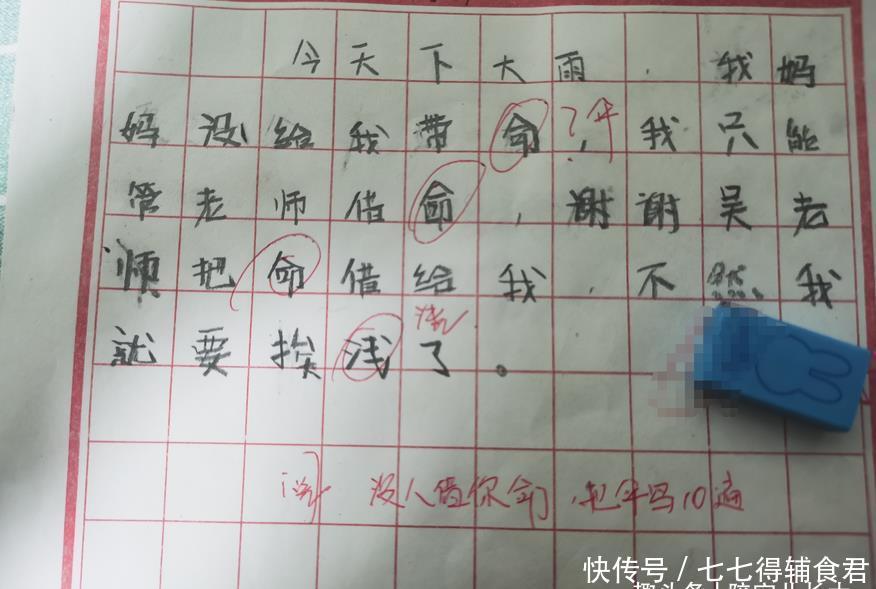 今天下大雨，我妈
妈没给我带命？伞，我只能
管老师借命，谢谢吴老
师把命借给我，不然我
就要挨浅了。
没人借你命，把伞写10遍
快传号／七七得辅食君